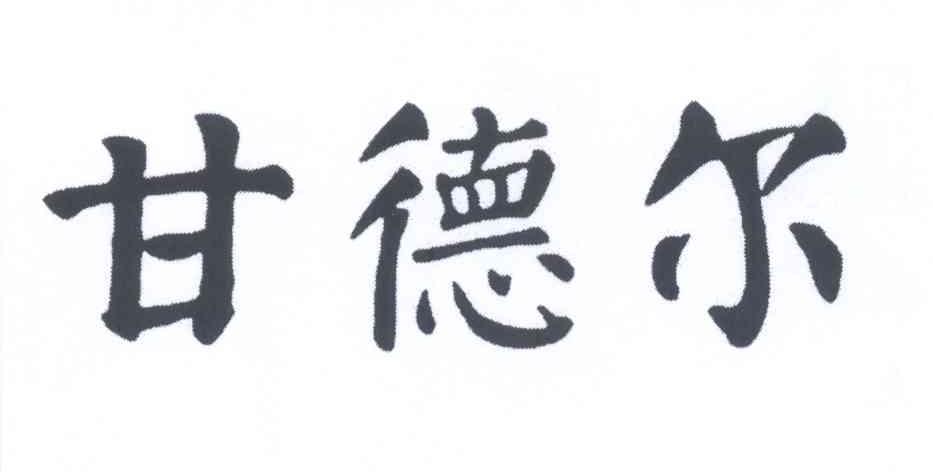 甘德尔